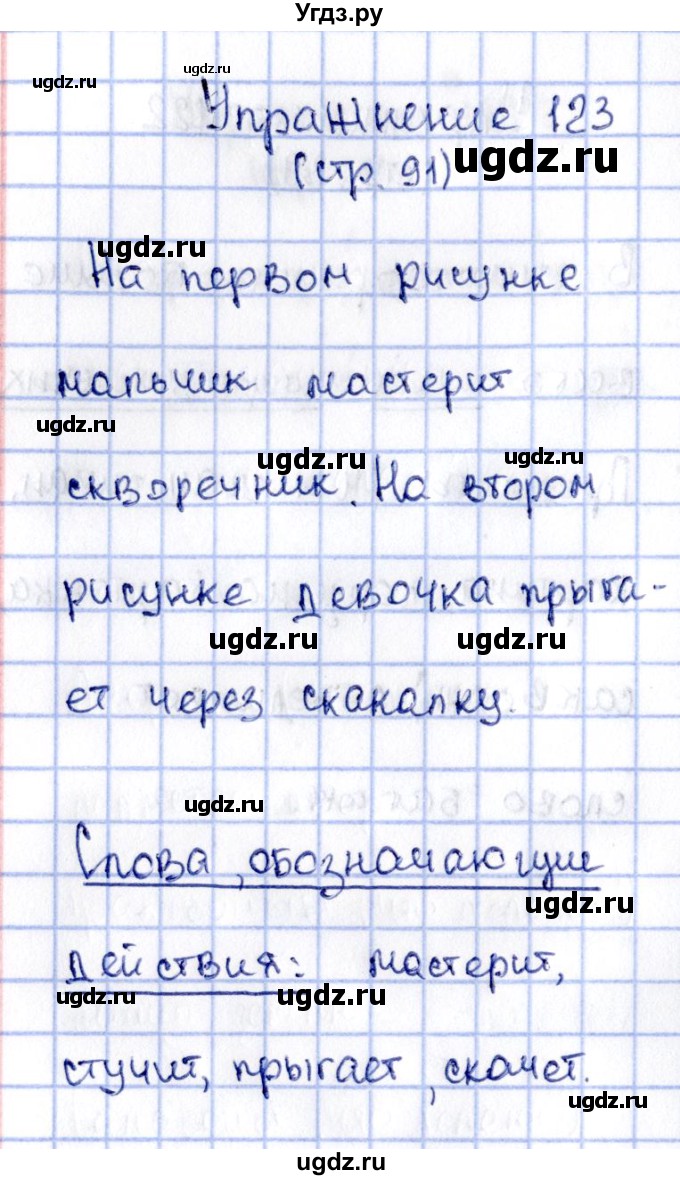 Угдз.ру
ugdz.ru ugdz.ru
Упражнение 123
ugdz.ru
(стр. 91)
ugdz.ru
На первом рисунке
мальчик мастерит
ugdz.ru
ugdz.ru ugdz.ru
скворечник. На втором
рисунке девочка прыга-
ugdz.ru ugdz.ru
ет через скакалку.
ugdz.ru
Слова, обозначающие
ugdz.ru
действия: мастерит,
ugdz.ru ugdz.ru
стучит, прыгает, скачет.
ugdz.ru
ugdz.ru